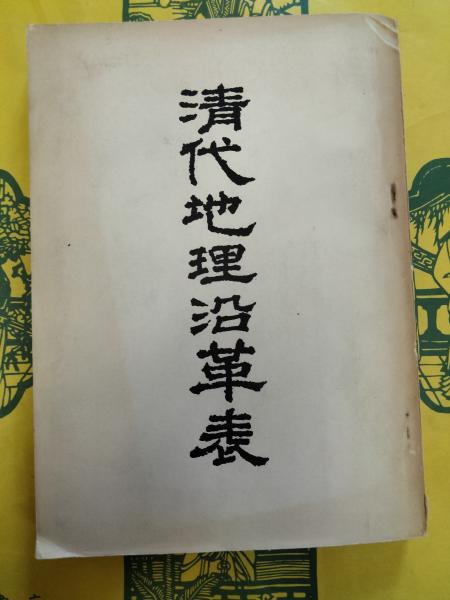 清代地理沿革表